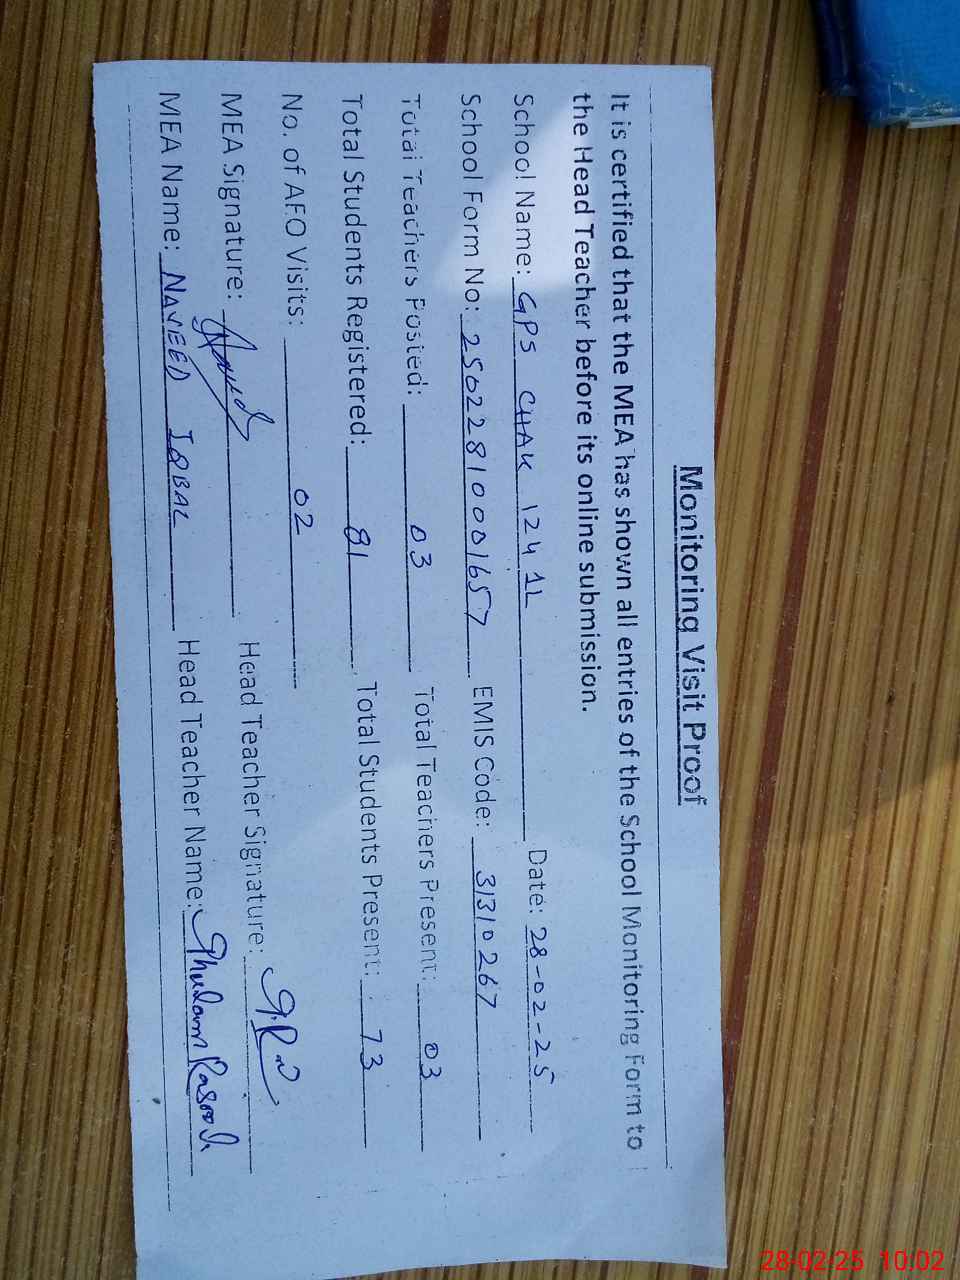 Monitoring Visit Proof
It is certified that the MEA has shown all entries of the School Monitoring Form to
the Head Teacher before its online submission.
School Name: GPS CHAK 124 1L Date: 28-02-25
School Form No: 25022810001657 EMIS Code: 31310267
Total Teachers Posted: 03 Total Teachers Present: 03
Total Students Registered: 81 Total Students Present: 73
No. of AEO Visits: 02
MEA Signature: Naveed Head Teacher Signature:
MEA Name: NAVEED IQBAL Head Teacher Name: Ghulam Rasool
28-02-25 10.02